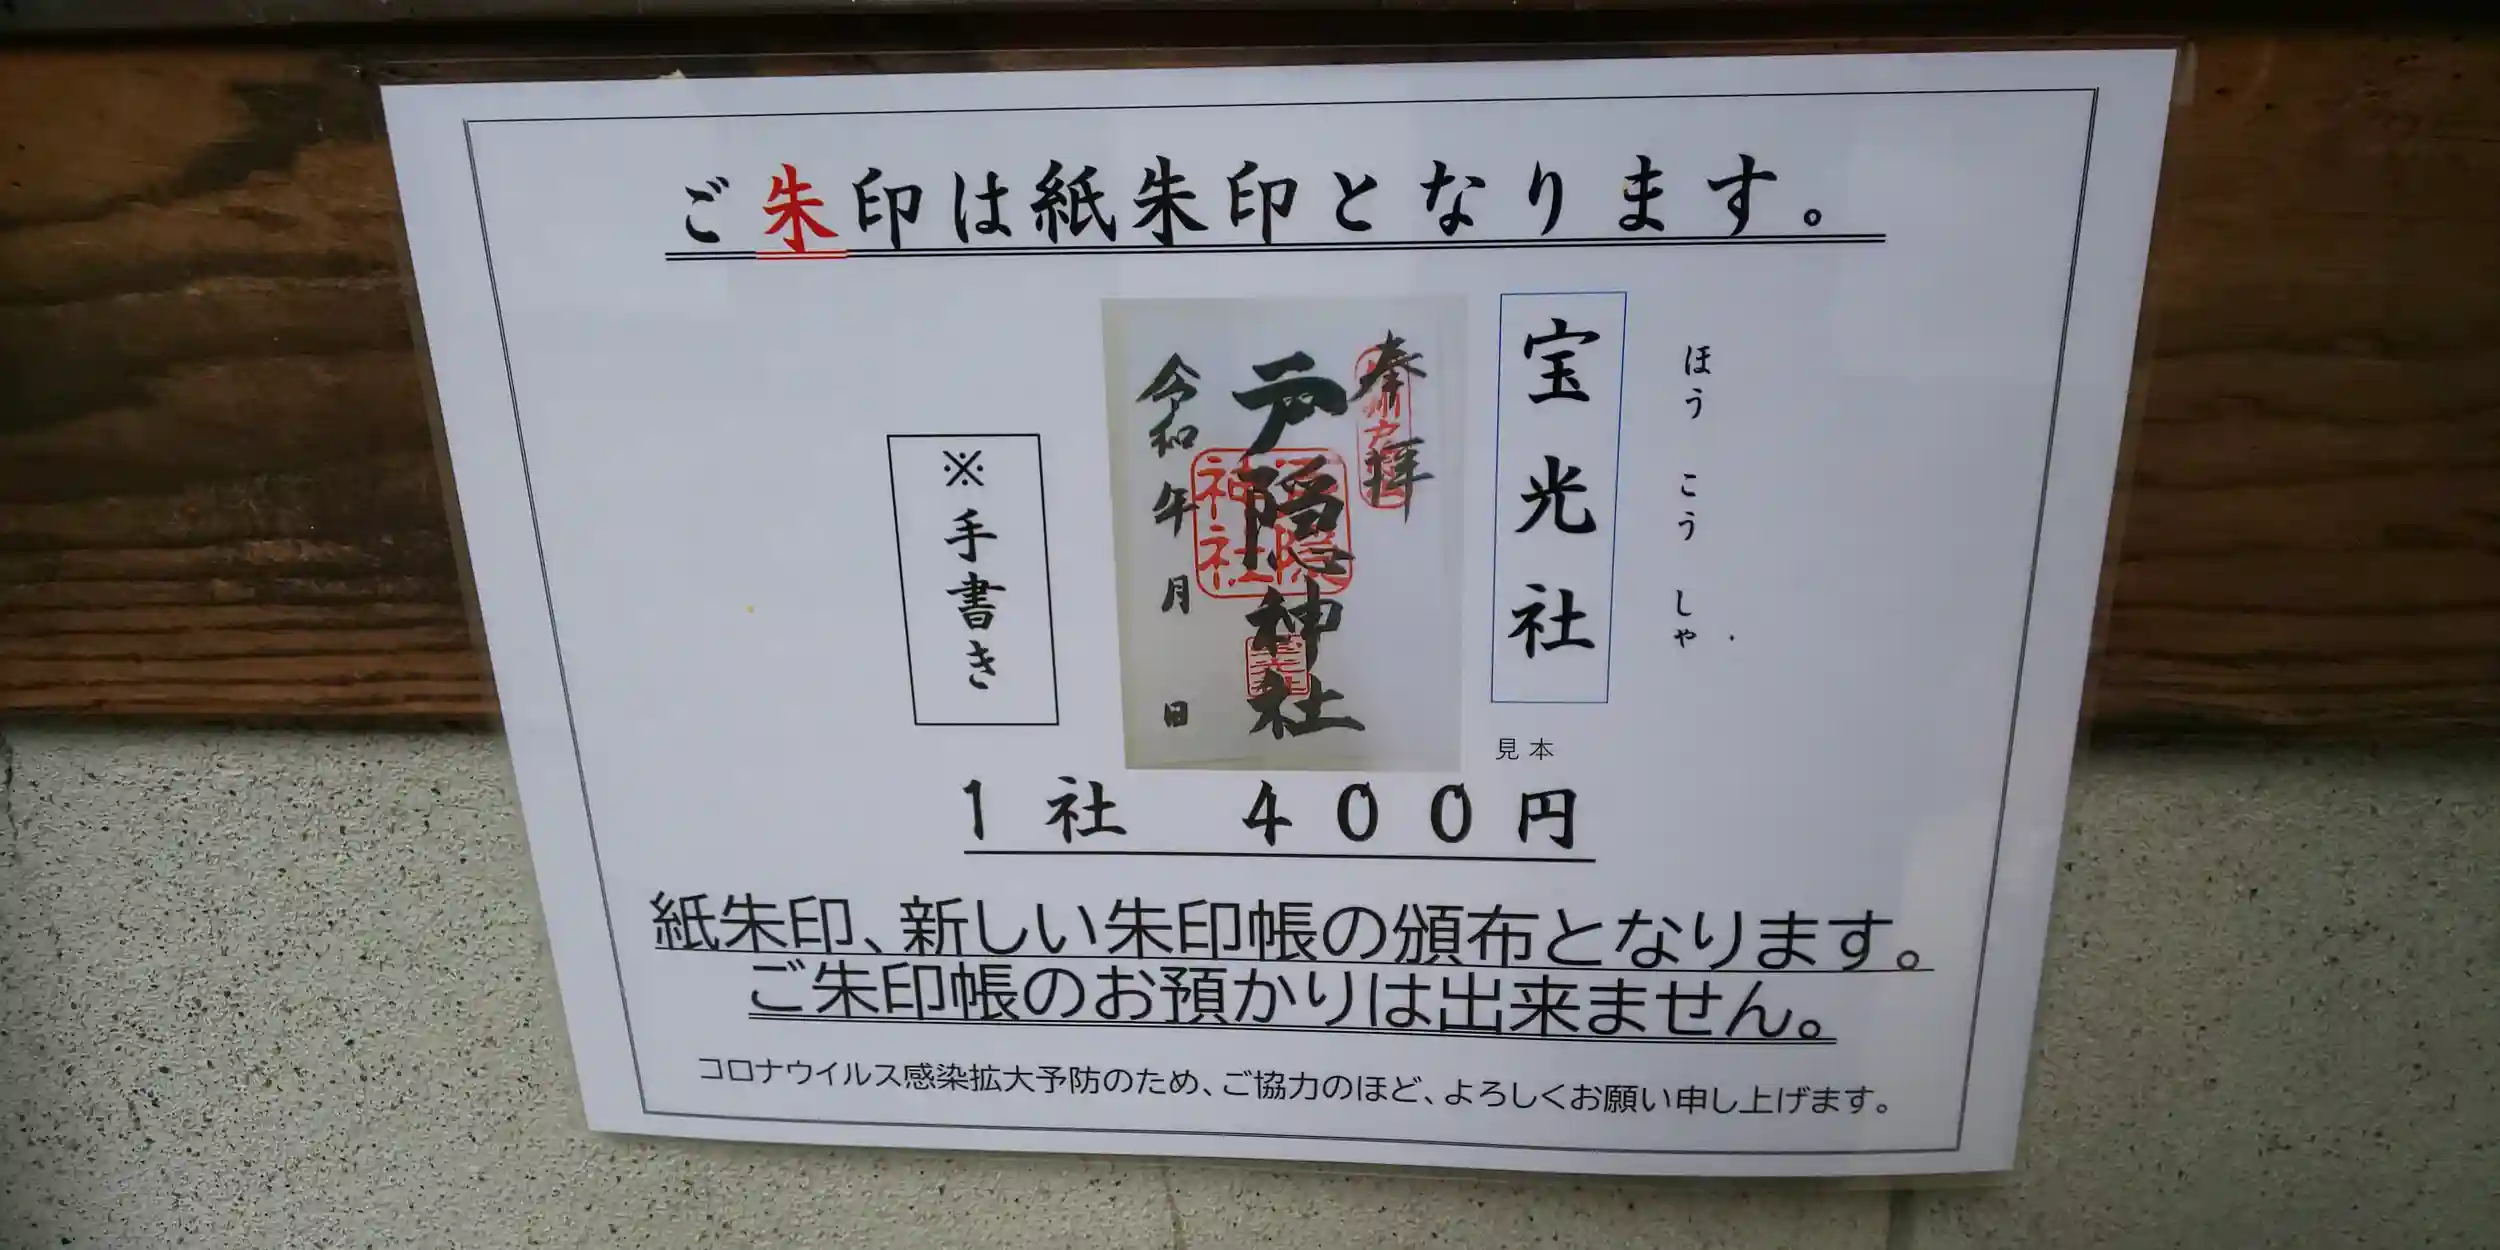 ご朱印は紙朱印となります。
ほうこうしゃ
宝光社
奉拝
戸隠神社
令和 年 月 日
※手書き
見本
1社 400円
紙朱印、新しい朱印帳の頒布となります。
ご朱印帳のお預かりは出来ません。
コロナウイルス感染拡大予防のため、ご協力のほど、よろしくお願い申し上げます。